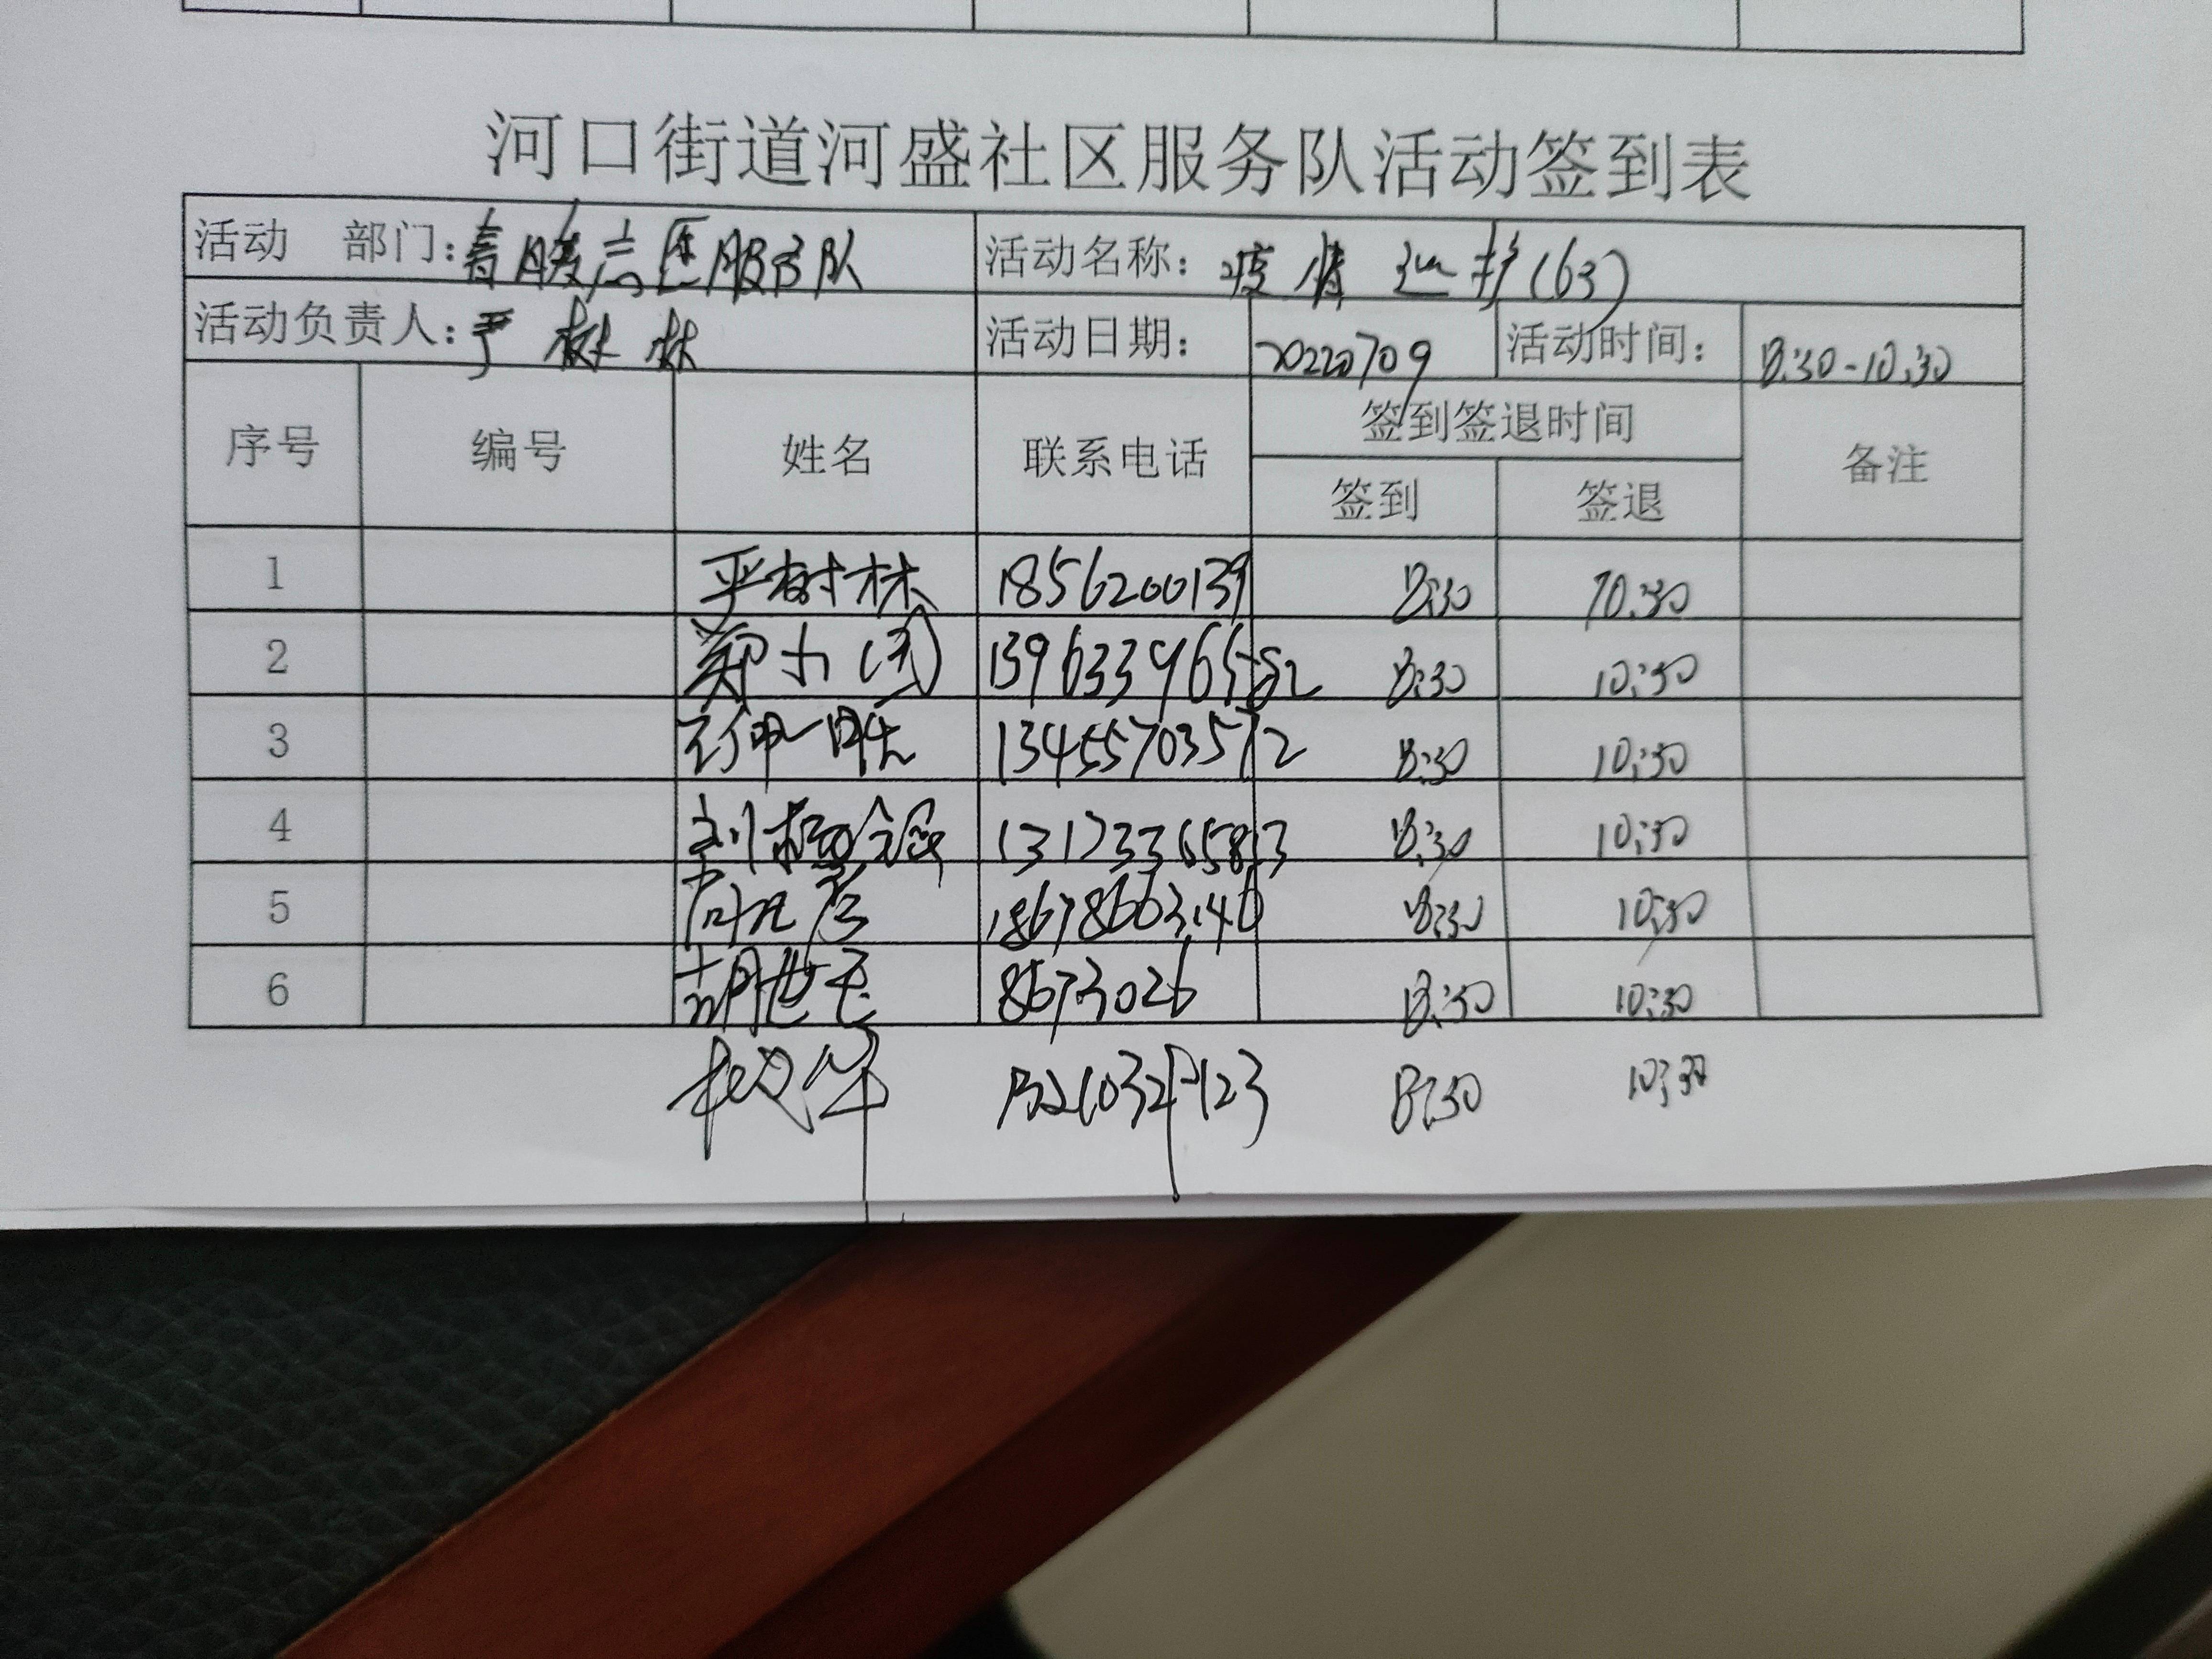 河口街道河盛社区服务队活动签到表
活动 部门：春暖志愿服务队 活动名称：疫情巡护(63)
活动负责人：严树林 活动日期： 20220709 活动时间： 8:30-10:30
序号 编号 姓名 联系电话 签到签退时间 备注
签到 签退
1 严树林 1856200139 8:30 10:30
2 郑 13963396582 8:30 10:30
3 13455703572 8:30 10:30
4 刘 8:30 10:30
5 8:30 10:30
6 胡世 8673026 8:30 10:30
8:30 10:30